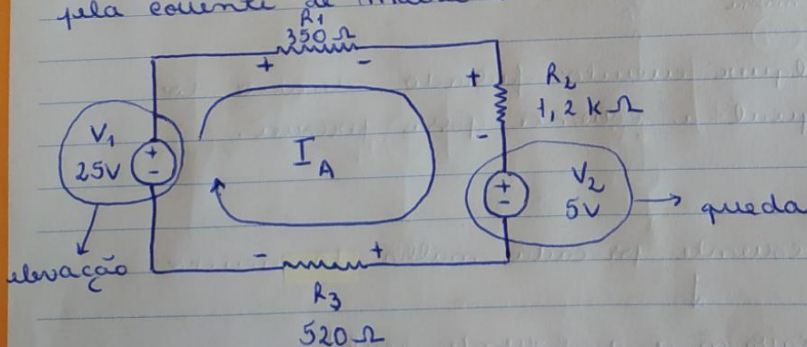 pela corrente de
R1
350 Ω
+ -
+
R2
1,2 kΩ
-
V1
25V
+
-
IA
+
-
V2
5V
queda
elevação
- +
R3
520 Ω